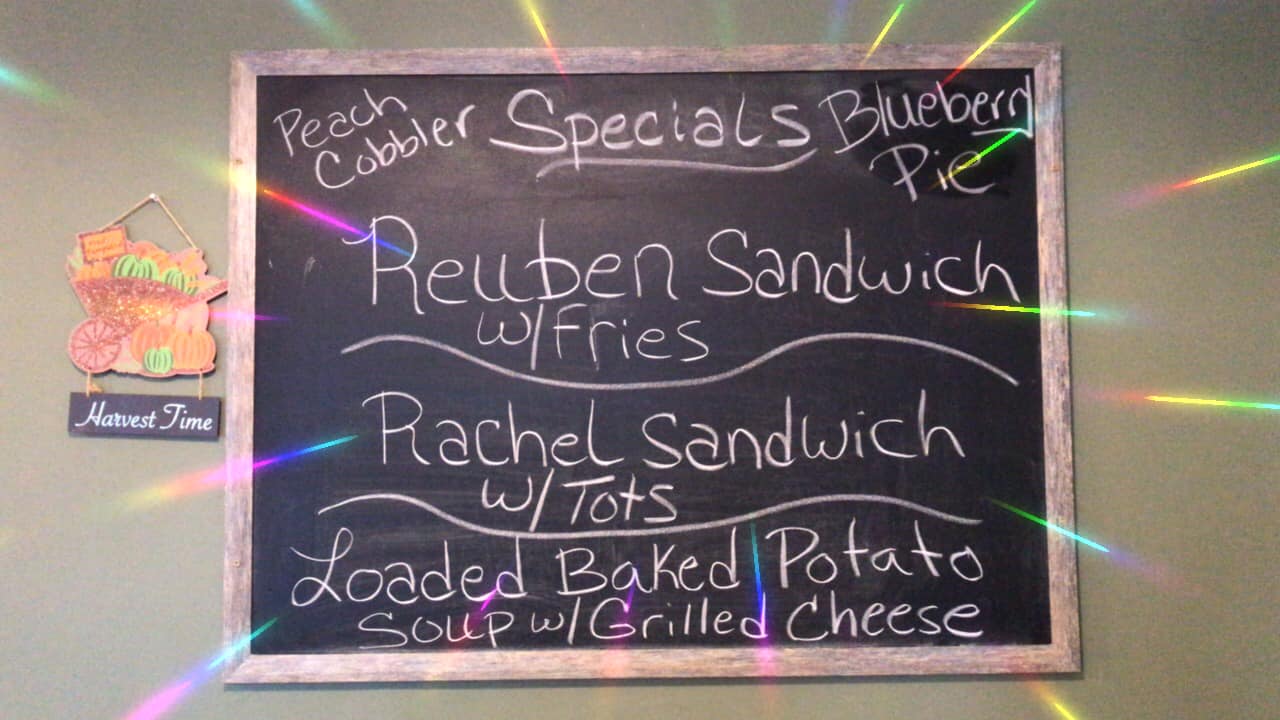 Peach
Cobbler
Specials
Blueberry
Pie
Reuben Sandwich
w/Fries
Rachel Sandwich
w/Tots
Loaded Baked Potato
Soup w/Grilled Cheese
Harvest Time